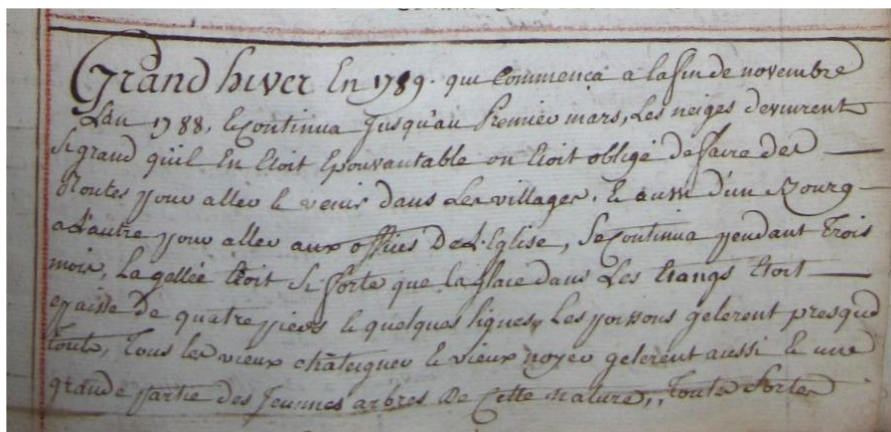 Grand hiver En 1789. qui Commença a la fin de novembre
L'an 1788, & Continua Jusqu'au Premier mars, Les neiges devinrent
Si grand qu'il En Etoit Epouvantable on Etoit obligé de faire des
Routes pour aller & venir dans Les villages, & d'un Bourg
a L'autre pour aller aux offices De L'Eglise, Se Continua pendant Trois
mois, La gellée Etoit Si forte que la glace dans Les Etangs Etoit
epaisse de quatre pieds & quelques lignes, Les poissons gelerent presque
Touts, Tous les vieux chateigner & vieux noyer gelerent aussi & une
grande partie des Jeunnes arbres De Cette nature,, Toute Sortes